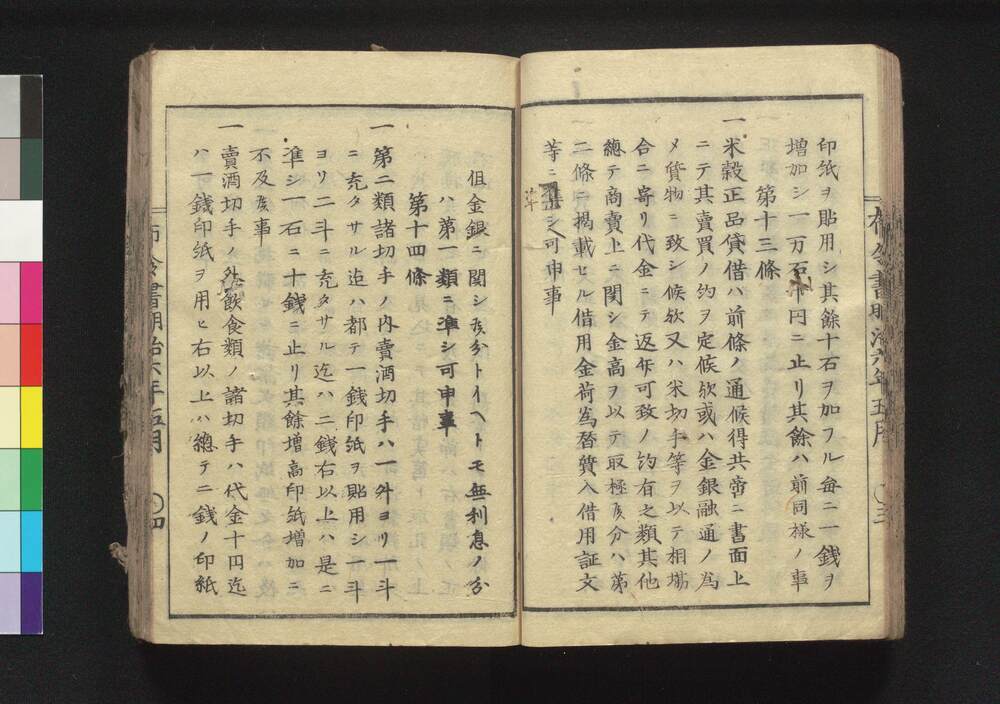 印紙ヲ貼用シ其餘十石ヲ加フル毎ニ一錢ヲ
増加シ一万石十円ニ止リ其餘ハ前同様ノ事
第十三條
一米穀正品貸借ハ前條ノ通候得共啻ニ書面上
ニテ其賣買ノ約ヲ定候欤或ハ金銀融通ノ為
メ貨物ニ致シ候欤又ハ米切手等ヲ以テ相場
合ニ寄リ代金ニテ返弁可致ノ約有之類其他
總テ商賣上ニ関シ金高ヲ以テ取極候分ハ第
二條ニ掲載セル借用金荷為替質入借用証文
等ニ準シ可申事
準
布令書明治六年五月
三
但金銀ニ関シ候分トイヘトモ無利息ノ分
ハ第一類ニ準シ可申事
第十四條
一第二類諸切手ノ内賣酒切手ハ一升ヨリ一斗
ニ充タサル迄ハ都テ一錢印紙ヲ貼用シ一斗
ヨリ二斗ニ充タサル迄ハ二錢右以上ハ是ニ
準シ一石ニ十錢ニ止リ其餘増高印紙増加ニ
不及候事
一賣酒切手ノ外飲食類ノ諸切手ハ代金十円迄
ハ一錢印紙ヲ用ヒ右以上ハ總テ二錢ノ印紙
布令書明治六年五月
四